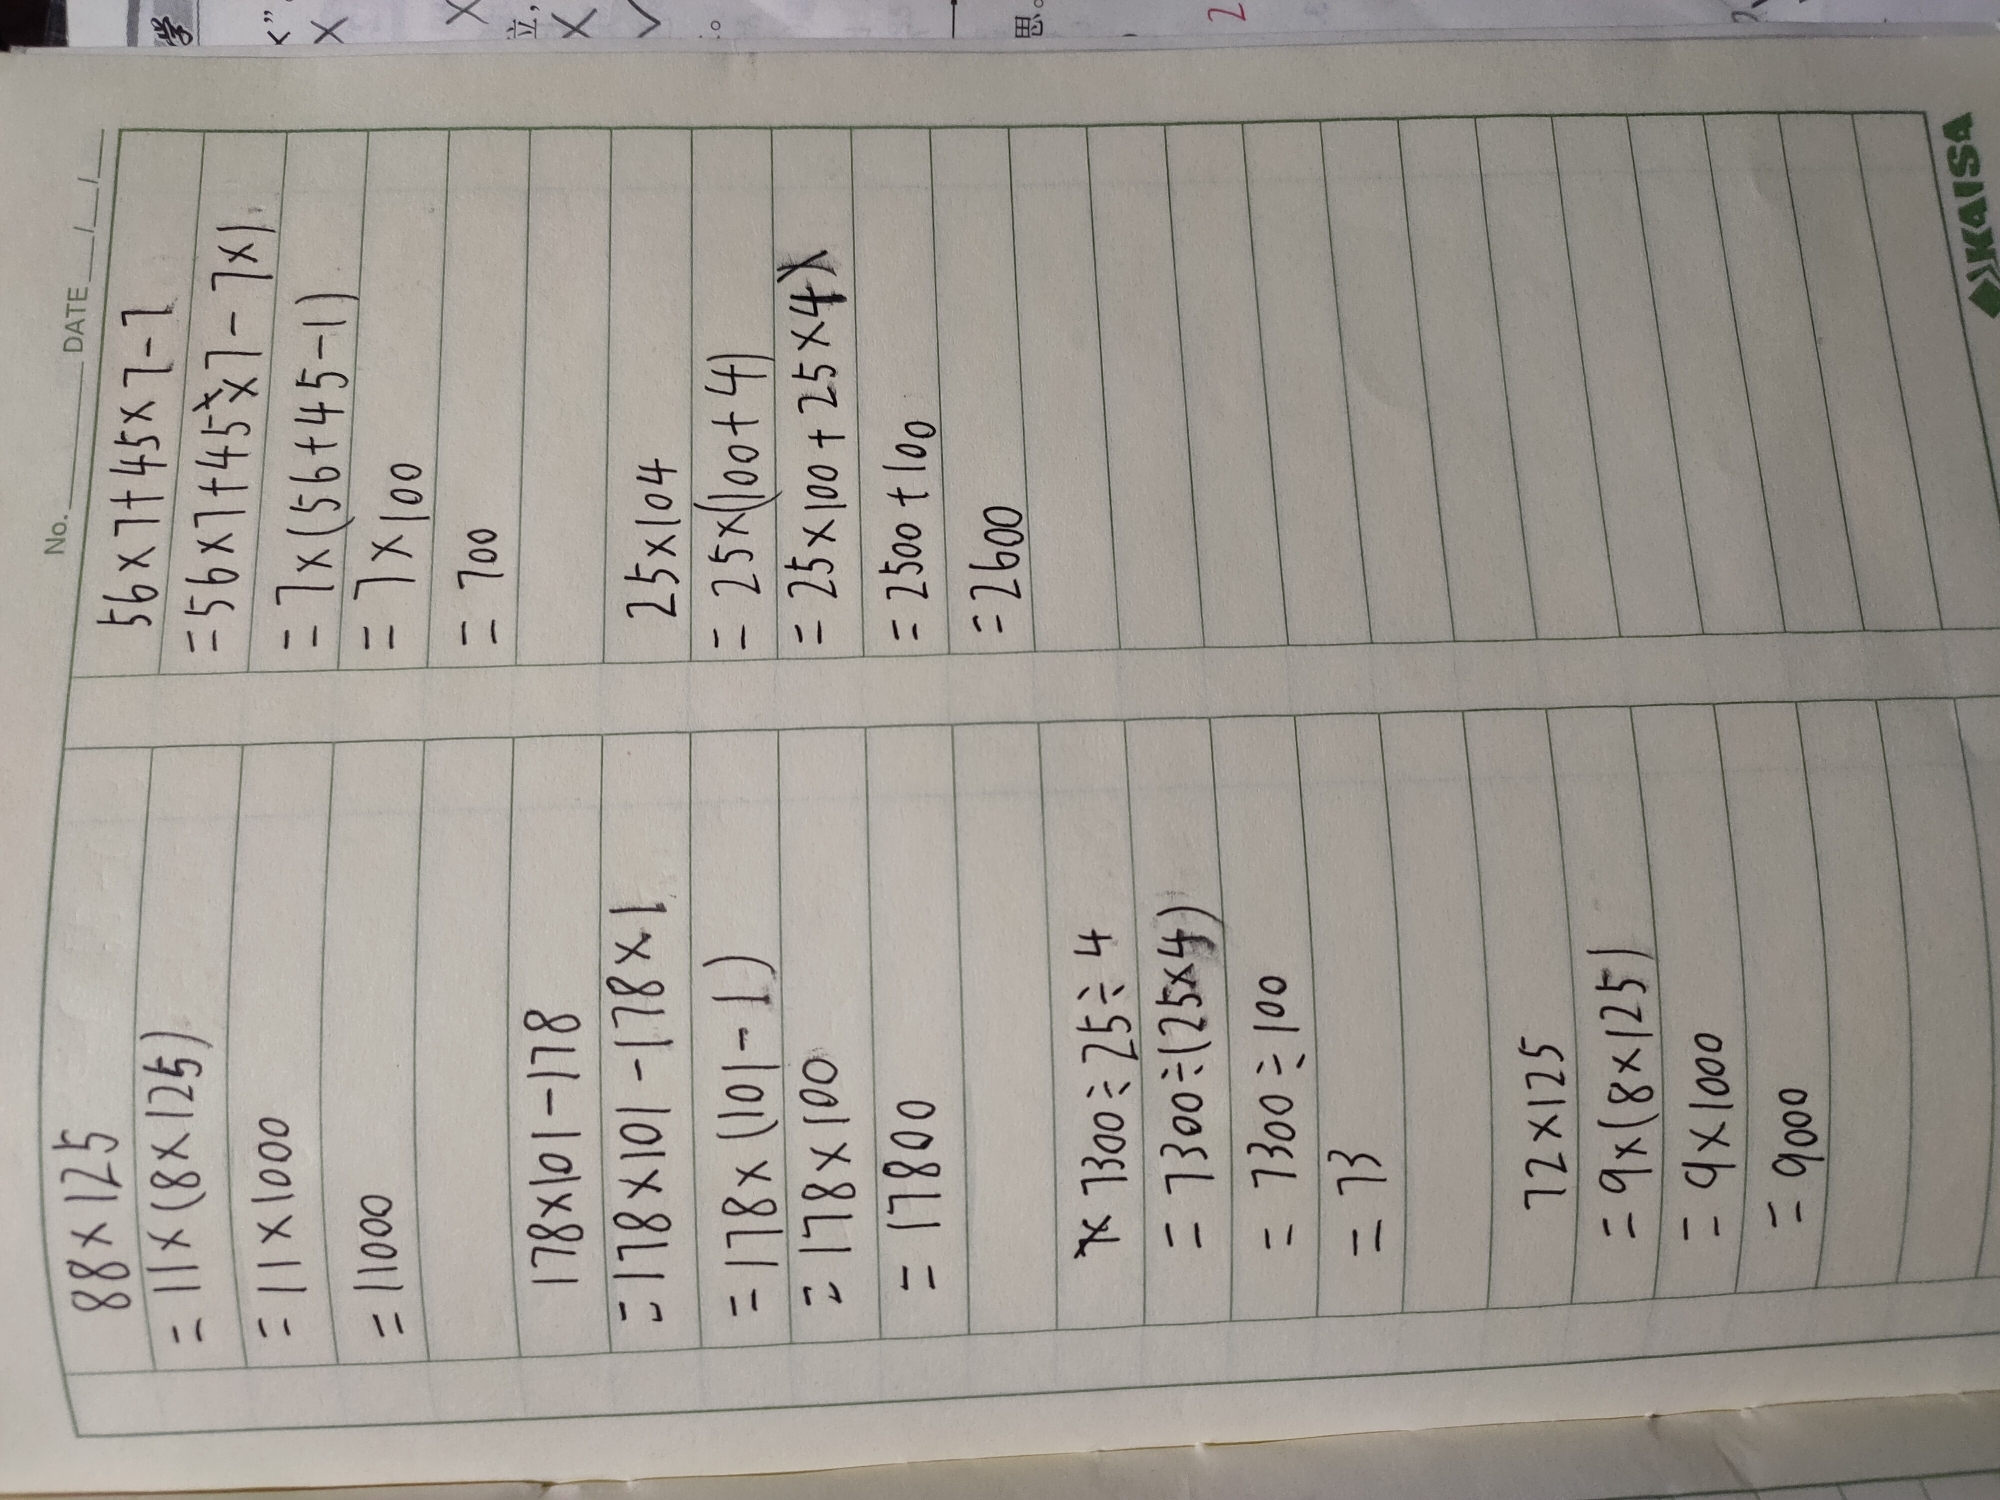 88×125
=11×(8×125)
=11×1000
=11000
178×101-178
=178×101-178×1
=178×(101-1)
=178×100
=17800
7300÷25÷4
=7300÷(25×4)
=7300÷100
=73
72×125
=9×(8×125)
=9×1000
=9000
No. DATE / /
56×7+45×7-7
=56×7+45×7-7×1
=7×(56+45-1)
=7×100
=700
25×104
=25×(100+4)
=25×100+25×4
=2500+100
=2600
KAISA
学
立,
思。
2